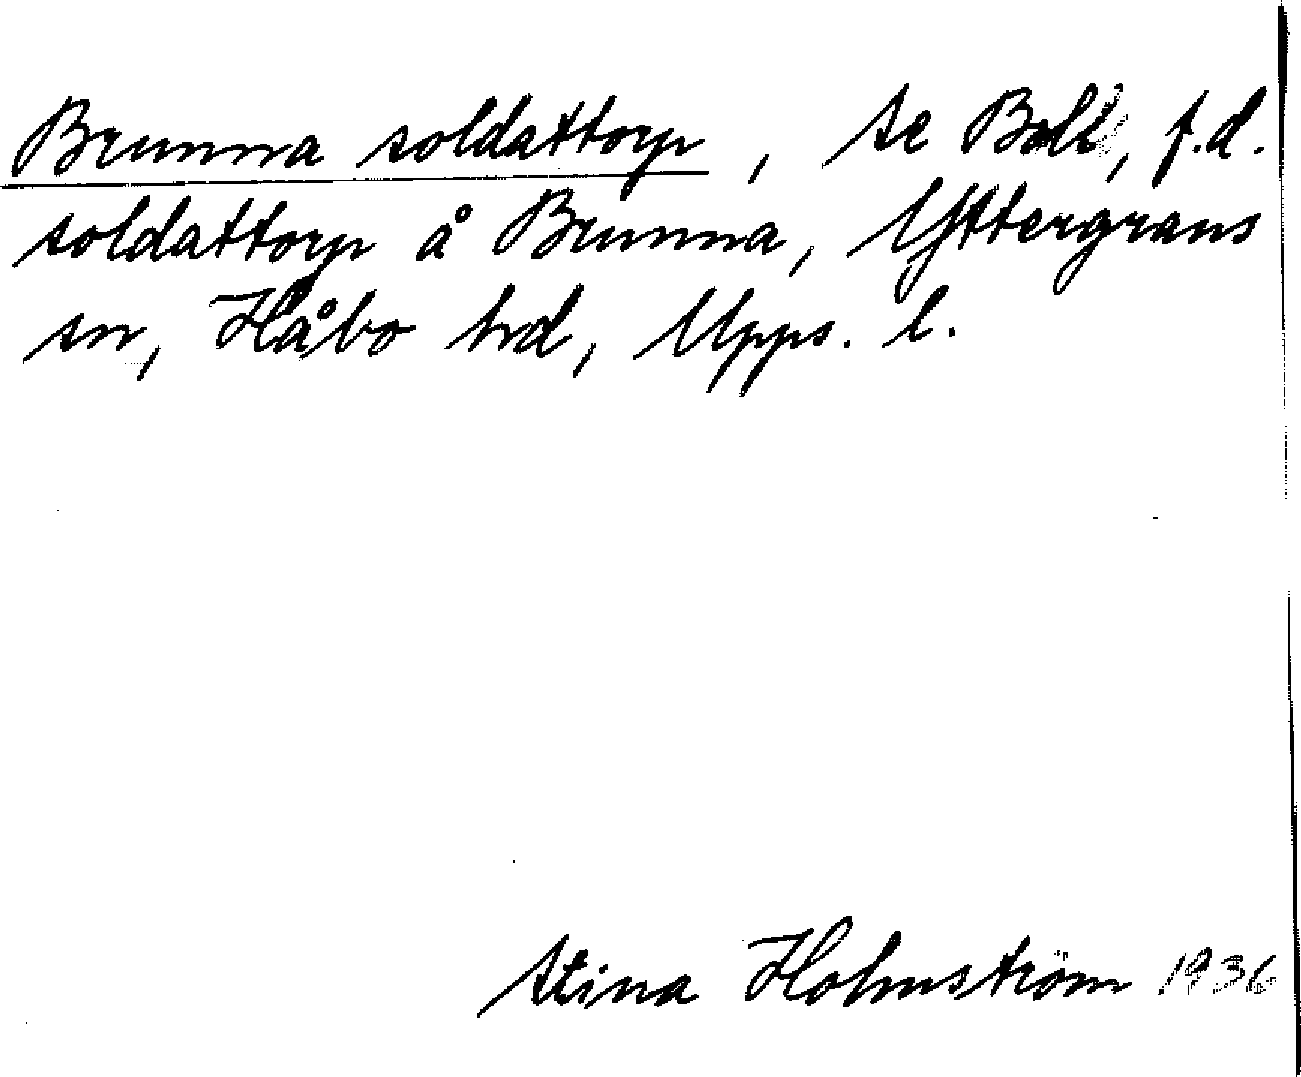 Brunna soldattorp, se Boll, f.d.
soldattorp å Brunna, Yttergrans
sn, Håbo hd, Upps. l.
Stina Holmström 1936